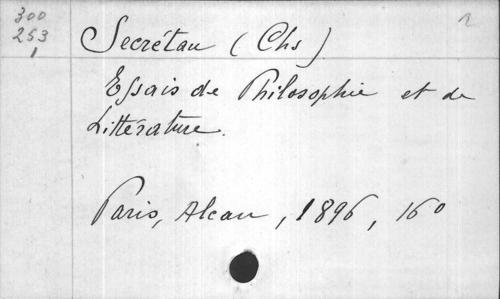 300
253
1
Secrétan (Chs)
Essais de Philosophie et de
Littérature.
Paris, Alcan, 1896, 16º